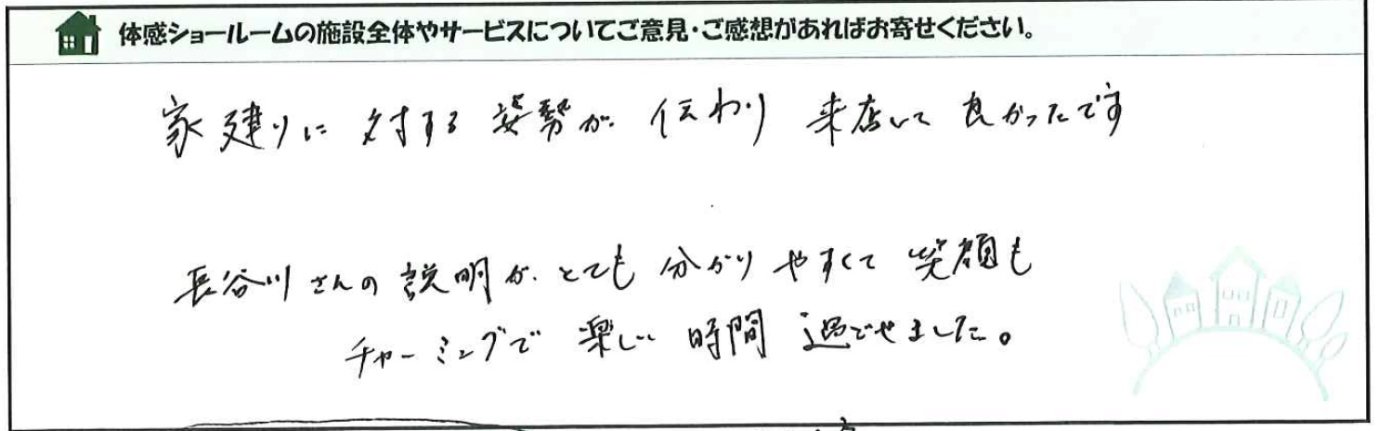 体感ショールームの施設全体やサービスについてご意見・ご感想があればお寄せください。
家建りに対する姿勢が伝わり来店して良かったです
長谷川さんの説明が、とても分かりやすくて笑顔も
チャーミングで楽しい時間過ごせました。